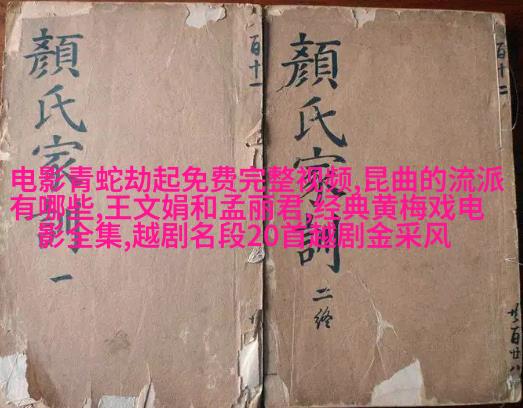 電影青蛇劫起免费完整视频,昆曲的流派
有哪些,王文娟和孟丽君,经典黄梅戏电
影全集,越剧名段20首越剧金采风
顏氏家訓
一
顏氏家訓
二終